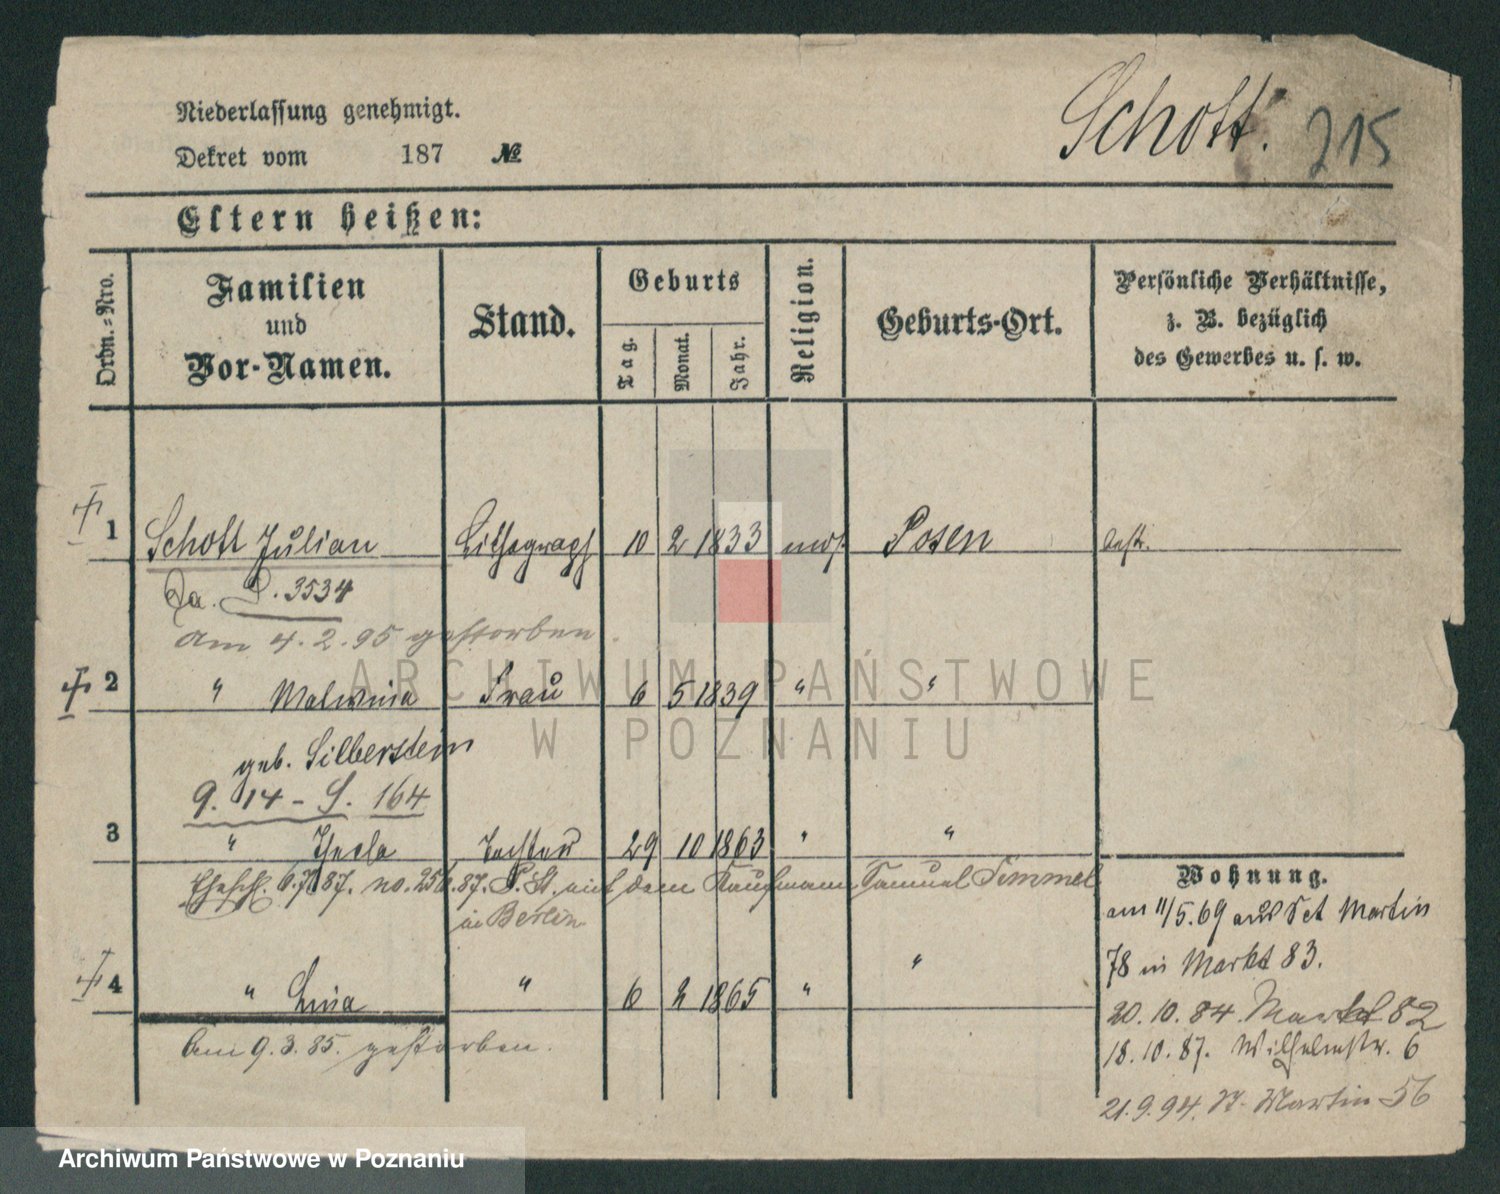 Niederlassung genehmigt.
Dekret vom 187 №
Schott. 215
Eltern heißen:
Ordn.=Nro.
Familien
und
Vor-Namen.
Stand.
Geburts
Tag.
Monat.
Jahr.
Religion.
Geburts-Ort.
Persönliche Verhältnisse,
z. B. bezüglich
des Gewerbes u. s. w.
1 Schott Julian Lithograph 10 2 1833 mos Posen
D. 3534
am 4.2.95 gestorben.
2 " Malwina Frau 6 5 1839 " "
geb. Silberstein
9. 14 - S. 164
3 " Thecla Tochter 29 10 1863 " "
Ehesch. 6.7.87. no. 256.87. P. St. mit dem Kaufmann Samuel Simmel
in Berlin
4 " Lina " 6 2 1865 " "
Am 9.3.85. gestorben.
Wohnung.
am 11/5.69 aus Sct Martin
78 in Markt 83.
20.10.84. Markt 82
18.10.87. Wilhelmstr. 6
21.9.94. St. Martin 56
ARCHIWUM PAŃSTWOWE
W POZNANIU
Archiwum Państwowe w Poznaniu